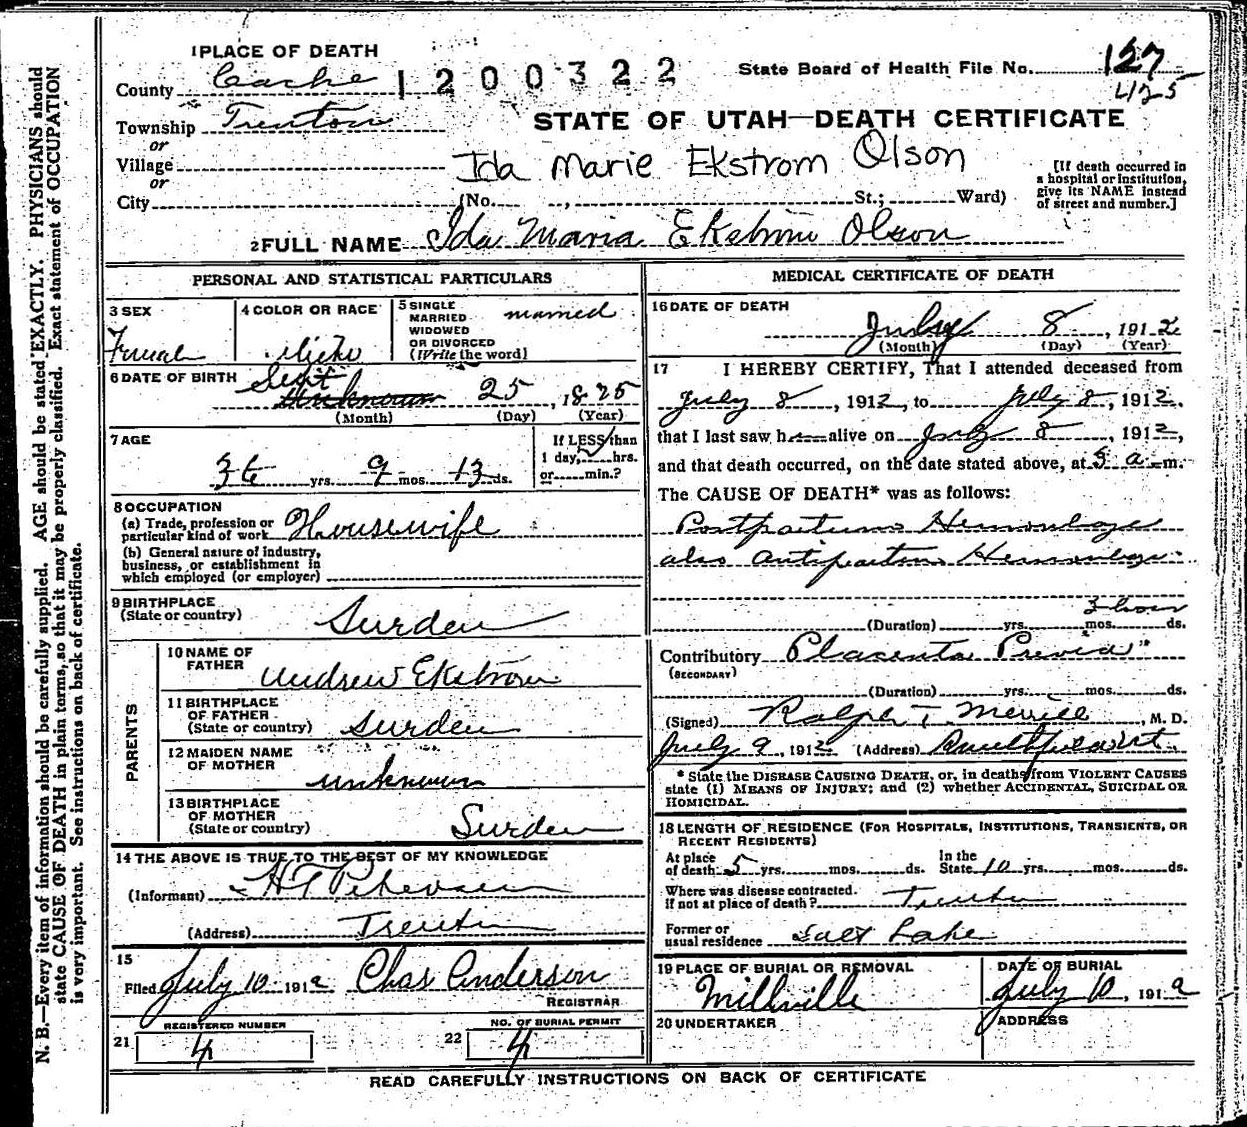 1 PLACE OF DEATH
County Cache 1200322 State Board of Health File No. 127
425
Township Trenton STATE OF UTAH—DEATH CERTIFICATE
or
Village Ida Marie Ekstrom Olson
or
City (No. , St.; Ward)
[If death occurred in a hospital or institution, give its NAME instead of street and number.]
2 FULL NAME Ida Maria Ekstrom Olson
PERSONAL AND STATISTICAL PARTICULARS
3 SEX Female
4 COLOR OR RACE White
5 SINGLE MARRIED WIDOWED OR DIVORCED (Write the word) married
6 DATE OF BIRTH Sept Unknown 25, 1875
(Month) (Day) (Year)
7 AGE 36 yrs. 9 mos. 13 ds.
If LESS than 1 day, hrs. or min.?
8 OCCUPATION
(a) Trade, profession or particular kind of work Housewife
(b) General nature of industry, business, or establishment in which employed (or employer)
9 BIRTHPLACE (State or country) Surden
PARENTS
10 NAME OF FATHER Andrew Ekstrom
11 BIRTHPLACE OF FATHER (State or country) Surden
12 MAIDEN NAME OF MOTHER unknown
13 BIRTHPLACE OF MOTHER (State or country) Surden
14 THE ABOVE IS TRUE TO THE BEST OF MY KNOWLEDGE
(Informant) Petersen
(Address) Trenton
15 Filed July 10 1912 Chas Anderson
REGISTRAR
21 REGISTERED NUMBER 4
22 NO. OF BURIAL PERMIT 4
MEDICAL CERTIFICATE OF DEATH
16 DATE OF DEATH July 8, 1912
(Month) (Day) (Year)
17 I HEREBY CERTIFY, That I attended deceased from
July 8, 1912, to July 8, 1912,
that I last saw h alive on July 8, 1912,
and that death occurred, on the date stated above, at a m.
The CAUSE OF DEATH* was as follows:
Postpartum Hemorrhage
also Antipartum Hemorrhage
3 hour
(Duration) yrs. mos. ds.
Contributory Placenta Previa
(SECONDARY)
(Duration) yrs. mos. ds.
(Signed) Ralph T Merrill, M. D.
July 9, 1912 (Address) Smithfield Ut.
* State the DISEASE CAUSING DEATH, or, in deaths from VIOLENT CAUSES state (1) MEANS OF INJURY; and (2) whether ACCIDENTAL, SUICIDAL OR HOMICIDAL.
18 LENGTH OF RESIDENCE (FOR HOSPITALS, INSTITUTIONS, TRANSIENTS, OR RECENT RESIDENTS)
At place of death 5 yrs. mos. ds. In the State 10 yrs. mos. ds.
Where was disease contracted. if not at place of death? Trenton
Former or usual residence Salt Lake
19 PLACE OF BURIAL OR REMOVAL Millville
DATE OF BURIAL July 10, 1912
20 UNDERTAKER
ADDRESS
READ CAREFULLY INSTRUCTIONS ON BACK OF CERTIFICATE
N. B.—Every item of information should be carefully supplied. AGE should be stated EXACTLY. PHYSICIANS should
state CAUSE OF DEATH in plain terms, so that it may be properly classified. Exact statement of OCCUPATION
is very important. See instructions on back of certificate.